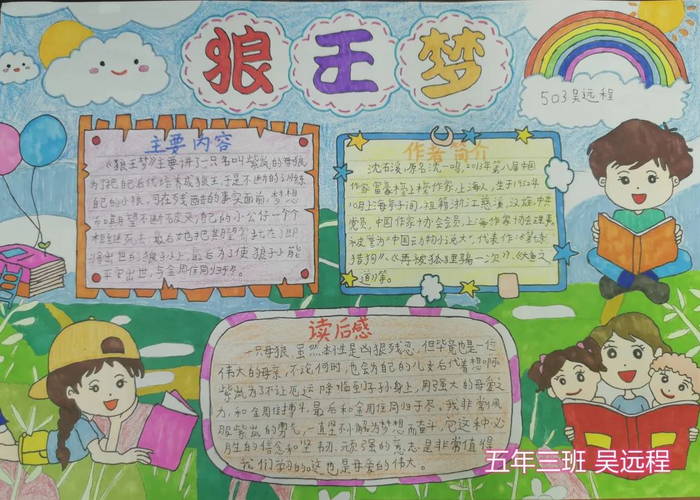 狼王梦
503吴远程
主要内容
《狼王梦》主要讲了一只名叫紫岚的母狼
为了把自己后代培养成狼王，于是不断的训练
自己的小狼，可在残酷的事实面前，梦想
和期望不断破灭，自己的小公仔一个个
相继死去，最后她把期望寄托在了即
将出世的狼孙上，最后为了使狼孙能
平安出世，与金雕同归于尽。
作者简介
沈石溪，原名沈一鸣，2013年第八届中国
作家富豪榜上榜作家，上海人，生于1952年
10月上海亭子间，祖籍浙江慈溪，汉族，中共
党员，中国作家协会会员，上海作家协会理事，
被誉为“中国动物小说大王”，代表作：《第七条
猎狗》、《再被狐狸骗一次》、《
道》等。
读后感
一只母狼，虽然本性是凶狠残忍，但毕竟也是一位
伟大的母亲，不论何时，也会为自己的儿女后代着想。
紫岚为了不让厄运降临到狼孙身上，用强大的母爱之
力，和金雕搏斗，最后和金雕同归于尽。我非常佩
服紫岚的勇气，一直坚不懈为梦想而奋斗，它这种必
生的信念和坚韧、顽强的意志是非常值得
我们学习的。这也是母爱的伟大。
五年三班 吴远程